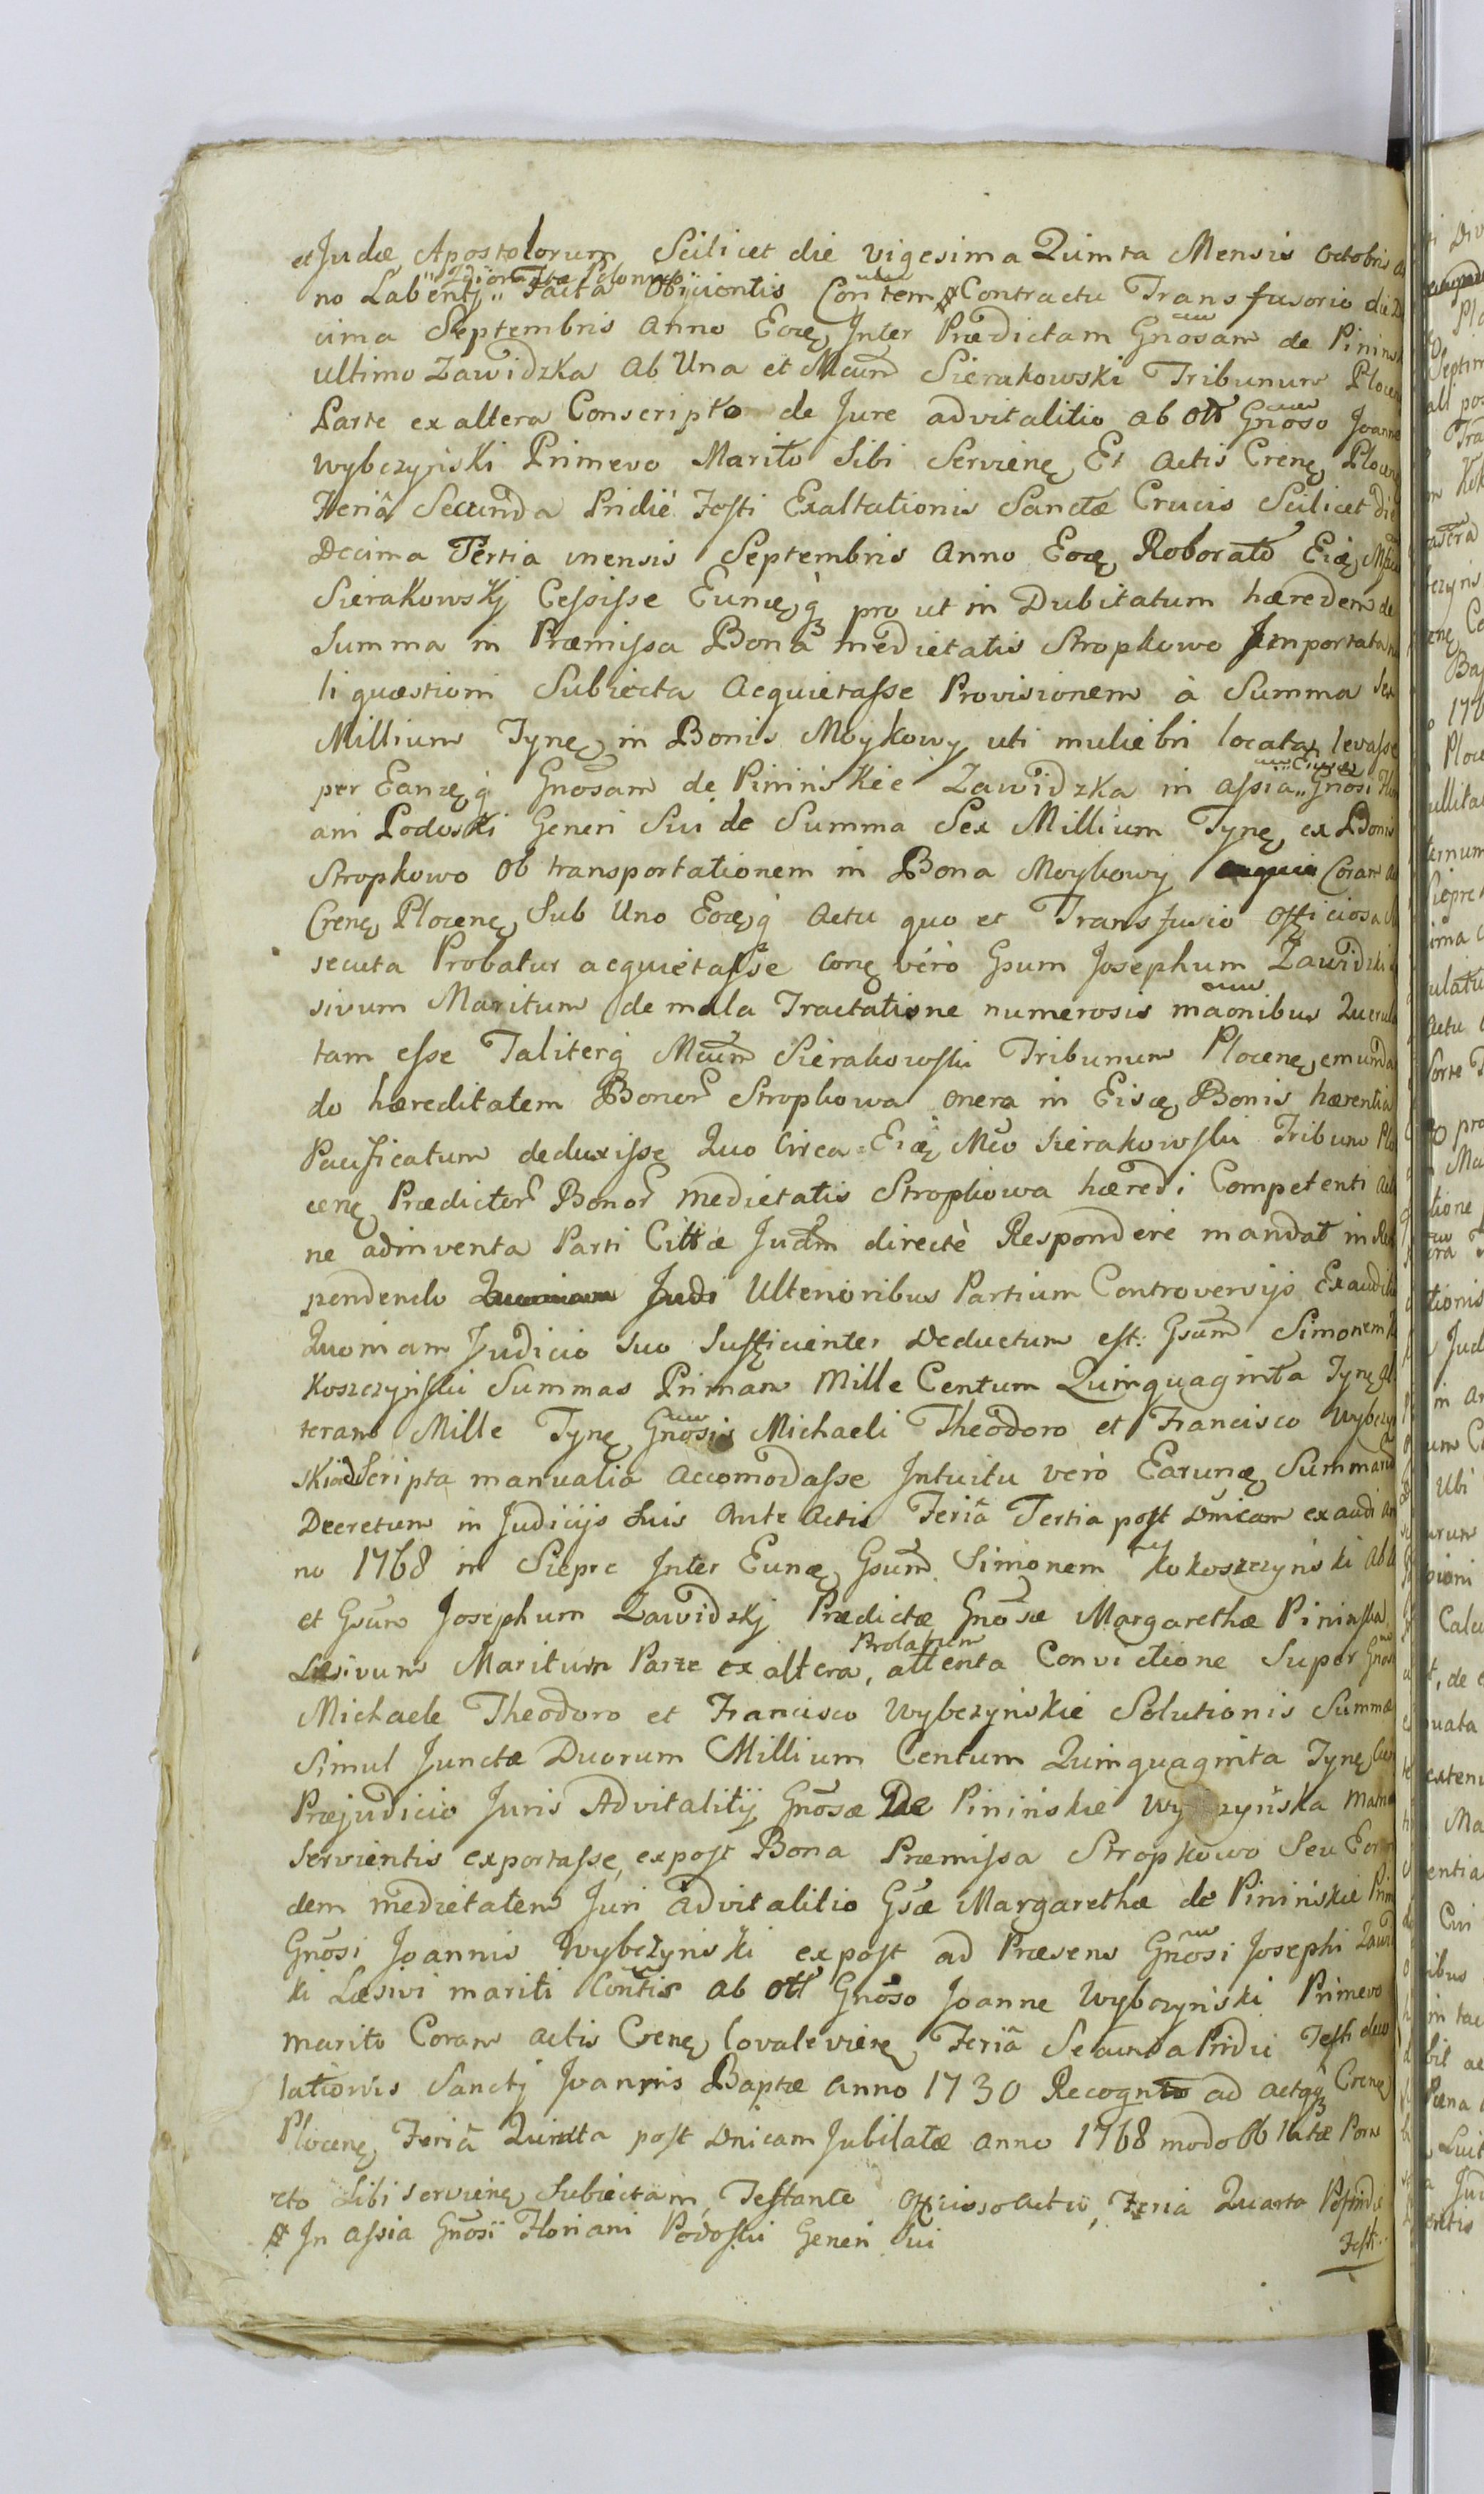 et Judæ Apostolorum Scilicet die vigesima Quinta Mensis Octobris
Idiomate Polonico
no Labentj Facta Obijcientis Con̄tem # Contractu Transfusorio die
cima Septembris Anno Eoꝝ Inter Prædictam Gn̄osam de Pinins
ultimo Zawidzka Ab Una et Mcum̄ Sierakowski Tribunum Plocen
Parte ex altera Conscripto de Jure advitalitio ab Ott Gn̄oso Joanne
Wybczyński Primevo Marito Sibi Servienę Et Actis Crenę Plocen
Feriâ Secunda Pridiè Festi Exaltationis Sanctæ Crucis Scilicet die
Decima Tertia mensis Septembris Anno Eoę Roborato Eię
Sierakowskj Cessisse Eunęq́ pro ut in Dubitatum hæredem de
Summa in Præmissa Bona medietatis Stropkowo Importata
li quæstioni Subiecta Acquietasse Provisionem à Summa Sex
Millium Tynę in Bonis Moykowy uti muliebri locata levasse
per Eanęq́ Gnōsam de Pinińskie Zawidzka in assia Gnōsi Flori
ani Podoski Generi Sui de Summa Sex Millium Tynę ex Bonis
Stropkowo Ob transportationem in Bona Moykowy Coram
Crenę Plocenę Sub Uno Eoęq́ Actu quo et Transfusio Officiosa
secuta Probatur acquietasse conę vérò Gsum Josephum Zawidzki
sivum Maritum de mala Tractatione numerosis maonibus Querula
tam esse Taliterq́ Mcum̄ Sierakowski Tribunum Plocenę emunda
do hæreditatem Bonor Stropkowa onera in Eisę Bonis hærentia
Pacificatum deduxisse Quo Circa Eię Mc̄o Sierakowski Tribuno Plo
cenę Prædictor Bonor Medietatis Stropkowa hæredi Competenti
ne adinventa Parti Cittæ Judm̄ directè Respondere mandat in Res
pendendo Judi Ulterioribus Partium Controversijs Exauditis
Quoniam Judicio suo Sufficienter Deductum est. Gsum̄ Simonem
Koszczyński Summas Primam Mille Centum Quinquaginta Tynę
teram Mille Tynę Gn̄osis Michaeli Theodoro et Francisco Wybczyn
ski ad Scripta manualia Accomodasse Intuitu verò Earunę Summarū
Decretum in Judicijs Suis Ante Actis Feriâ Tertia post Dnicam exaudi An
no 1768 in Sieprc Inter Eunę Gsum̄ Simonem Kokoszczyński Ab
et Gsum̄ Josephum Zawidzkj Prædictæ Gnōsæ Margarethæ Pinińska
Prolatum
Læsivum Maritum Parte ex altera, attenta Convictione Super Gnōs
Michaele Theodoro et Francisco Wybczyńskie Solutionis Summæ
Simul Junctæ Duorum Millium Centum Quinquaginta Tynę Cum
Præjudicio Juris Advitalitij Gnōsæ De Pinińskie Wybczyńska Matri
Servientis exportasse, expost Bona Præmissa Stropkowo Seu Eor
dem medietatem Juri Advitalitio Gsæ Margarethæ de Pinińskie Prim
Gnōsi Joannis Wybczyński expost ad Præsens Gnōsi Josephi Zawidz
ki Læsivi mariti Con̄tis ab Ott Gnōso Joanne Wybczyński Primevo
marito Coram Actis Crenę Covalevienę Feriâ Secunda Pridie Festi decol
lationis Sanctj Joannis Baptæ Anno 1730 Recognito ad actaq́ Crenę
Plocenę Feriâ Quinta post Dnicam Jubilatæ Anno 1768 modo Oblatæ Porre
cto Sibi Servienę Subiectam, Testante Officioso Actu, Feria Quarta Postridie
# In Assia Gnōsi Floriani Podoski Generi Sui
Festi